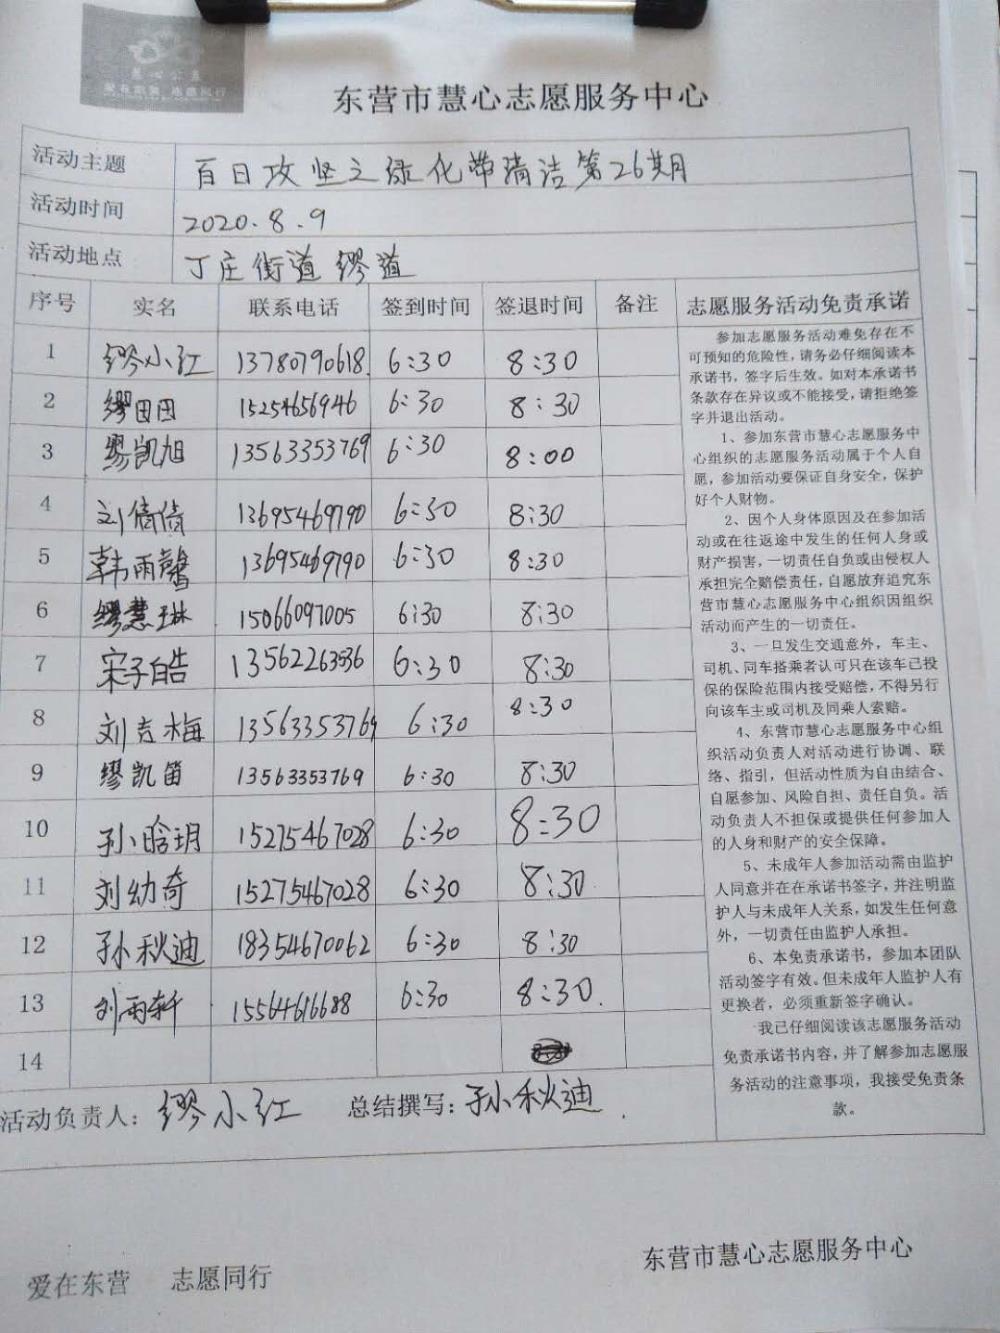 慧心公益
爱在东营 志愿同行
东营市慧心志愿服务中心
活动主题 百日攻坚之绿化带清洁第26期
活动时间 2020.8.9
活动地点 丁庄街道 缪道
序号 实名 联系电话 签到时间 签退时间 备注 志愿服务活动免责承诺
1 缪小红 13780790618 6:30 8:30
2 缪田田 15254656946 6:30 8:30
3 缪凯旭 13563353769 6:30 8:00
4 刘倩倩 13695469790 6:30 8:30
5 韩雨馨 13695469790 6:30 8:30
6 缪慧琳 15066097005 6:30 8:30
7 宋子皓 13562263536 6:30 8:30
8 刘吉梅 13563353769 6:30 8:30
9 缪凯笛 13563353769 6:30 8:30
10 孙晗玥 15275467028 6:30 8:30
11 刘幼奇 15275467028 6:30 8:30
12 孙秋迪 18354670062 6:30 8:30
13 刘雨轩 15564616688 6:30 8:30.
14
参加志愿服务活动难免存在不
可预知的危险性，请务必仔细阅读本
承诺书，签字后生效。如对本承诺书
条款存在异议或不能接受，请拒绝签
字并退出活动。
1、参加东营市慧心志愿服务中
心组织的志愿服务活动属于个人自
愿，参加活动要保证自身安全，保护
好个人财物。
2、因个人身体原因及在参加活
动或在往返途中发生的任何人身或
财产损害，一切责任自负或由侵权人
承担完全赔偿责任，自愿放弃追究东
营市慧心志愿服务中心组织因组织
活动而产生的一切责任。
3、一旦发生交通意外，车主、
司机、同车搭乘者认可只在该车已投
保的保险范围内接受赔偿，不得另行
向该车主或司机及同乘人索赔。
4、东营市慧心志愿服务中心组
织活动负责人对活动进行协调、联
络、指引，但活动性质为自由结合、
自愿参加、风险自担、责任自负。活
动负责人不担保或提供任何参加人
的人身和财产的安全保障。
5、未成年人参加活动需由监护
人同意并在在承诺书签字，并注明监
护人与未成年人关系，如发生任何意
外，一切责任由监护人承担。
6、本免责承诺书，参加本团队
活动签字有效。但未成年人监护人有
更换者，必须重新签字确认。
我已仔细阅读该志愿服务活动
免责承诺书内容，并了解参加志愿服
务活动的注意事项，我接受免责条
款。
活动负责人：缪小红 总结撰写：孙秋迪.
东营市慧心志愿服务中心
爱在东营 志愿同行